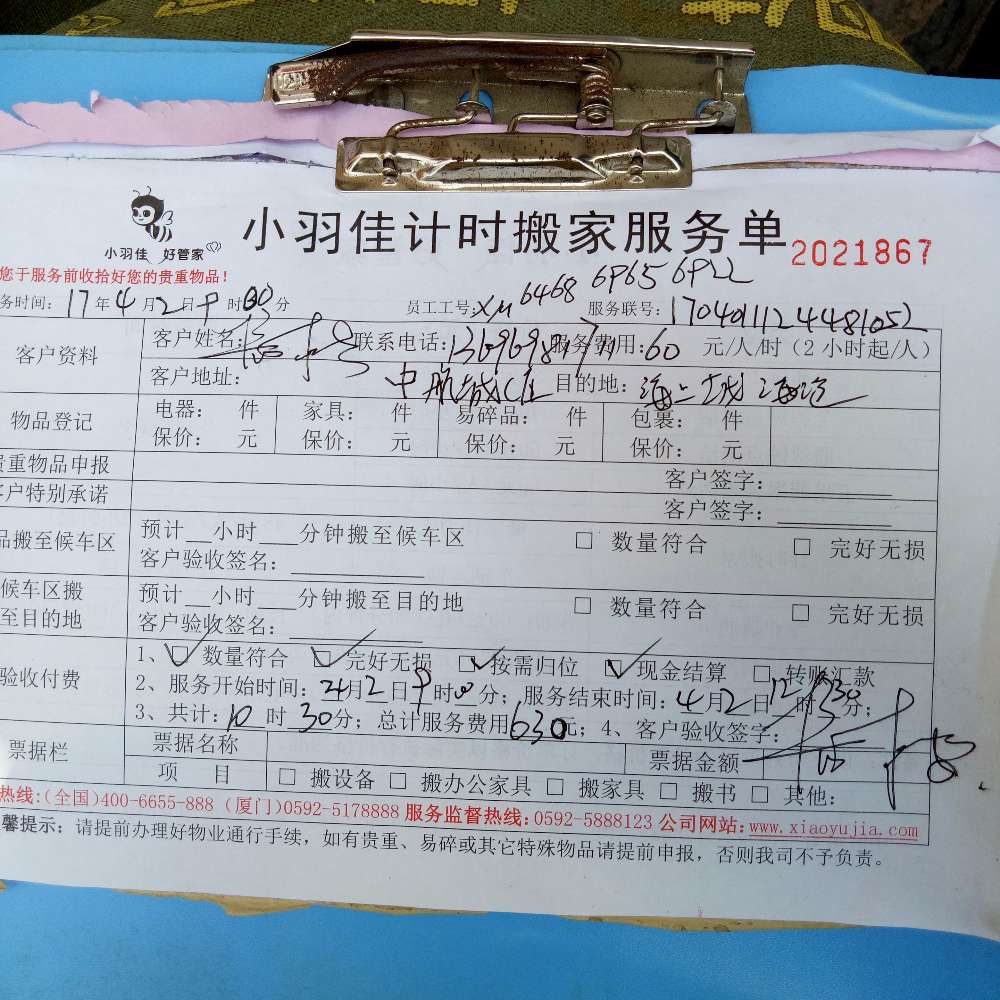 小羽佳 好管家
小羽佳计时搬家服务单 2021867
您于服务前收拾好您的贵重物品!
务时间: 17年4月2日 时00分 员工工号: 6468 6965 6922 服务联号: 1704011124481052
客户资料 客户姓名: 联系电话: 服务费用:60 元/人/时(2小时起/人)
客户地址: 中航城C区 目的地: 海上城
物品登记 电器: 件 家具: 件 易碎品: 件 包裹: 件
保价: 元 保价: 元 保价: 元 保价: 元
贵重物品申报 客户签字:
客户特别承诺 客户签字:
品搬至候车区 预计__小时___分钟搬至候车区 □ 数量符合 □ 完好无损
客户验收签名:
候车区搬至目的地 预计__小时___分钟搬至目的地 □ 数量符合 □ 完好无损
客户验收签名:
验收付费 1、☑ 数量符合 ☑ 完好无损 ☑ 按需归位 ☑ 现金结算 □ 转账汇款
2、服务开始时间: 4月2日 时00分; 服务结束时间: 4月2日12时30分;
3、共计:10时30分; 总计服务费用630元; 4、客户验收签字:
票据栏 票据名称 票据金额
项 目 □ 搬设备 □ 搬办公家具 □ 搬家具 □ 搬书 □ 其他:
热线:(全国)400-6655-888 (厦门)0592-5178888 服务监督热线:0592-5888123 公司网站:www.xiaoyujia.com
馨提示: 请提前办理好物业通行手续, 如有贵重、易碎或其它特殊物品请提前申报, 否则我司不予负责。